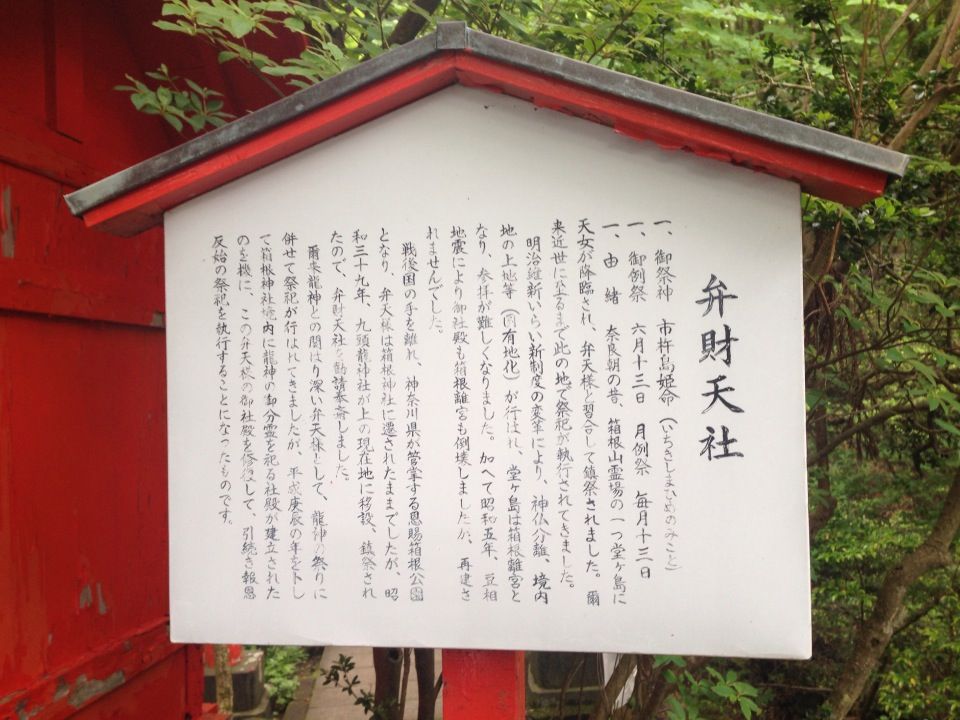 弁財天社
一、御祭神　市杵島姫命（いちきしまひめのみこと）
一、御例祭　六月十三日　月例祭　毎月十三日
一、由　緒　奈良朝の昔、箱根山霊場の一つ堂ヶ島に
天女が降臨され、弁天様と習合して鎮祭されました。爾
来近世に至るまで此の地で祭祀が執行されてきました。
明治維新いらい新制度の変革により、神仏分離、境内
地の上地等（国有地化）が行はれ、堂ヶ島は箱根離宮と
なり、参拝が難しくなりました。加へて昭和五年、豆相
地震により御社殿も箱根離宮も倒壊しましたが、再建さ
れませんでした。
戦後国の手を離れ、神奈川県が管掌する恩賜箱根公園
となり、弁天様は箱根神社に遷されたままでしたが、昭
和三十九年、九頭龍神社が上の現在地に移設、鎮祭され
たので、弁財天社を勧請奉斎しました。
爾来龍神との間はり深い弁天様として、龍神の祭りに
併せて祭祀が行はれてきましたが、平成庚辰の年を卜し
て箱根神社境内に龍神の御分霊を祀る社殿が建立された
のを機に、この弁天様の御社殿を修復して、引続き報恩
反始の祭祀を執行することになったものです。